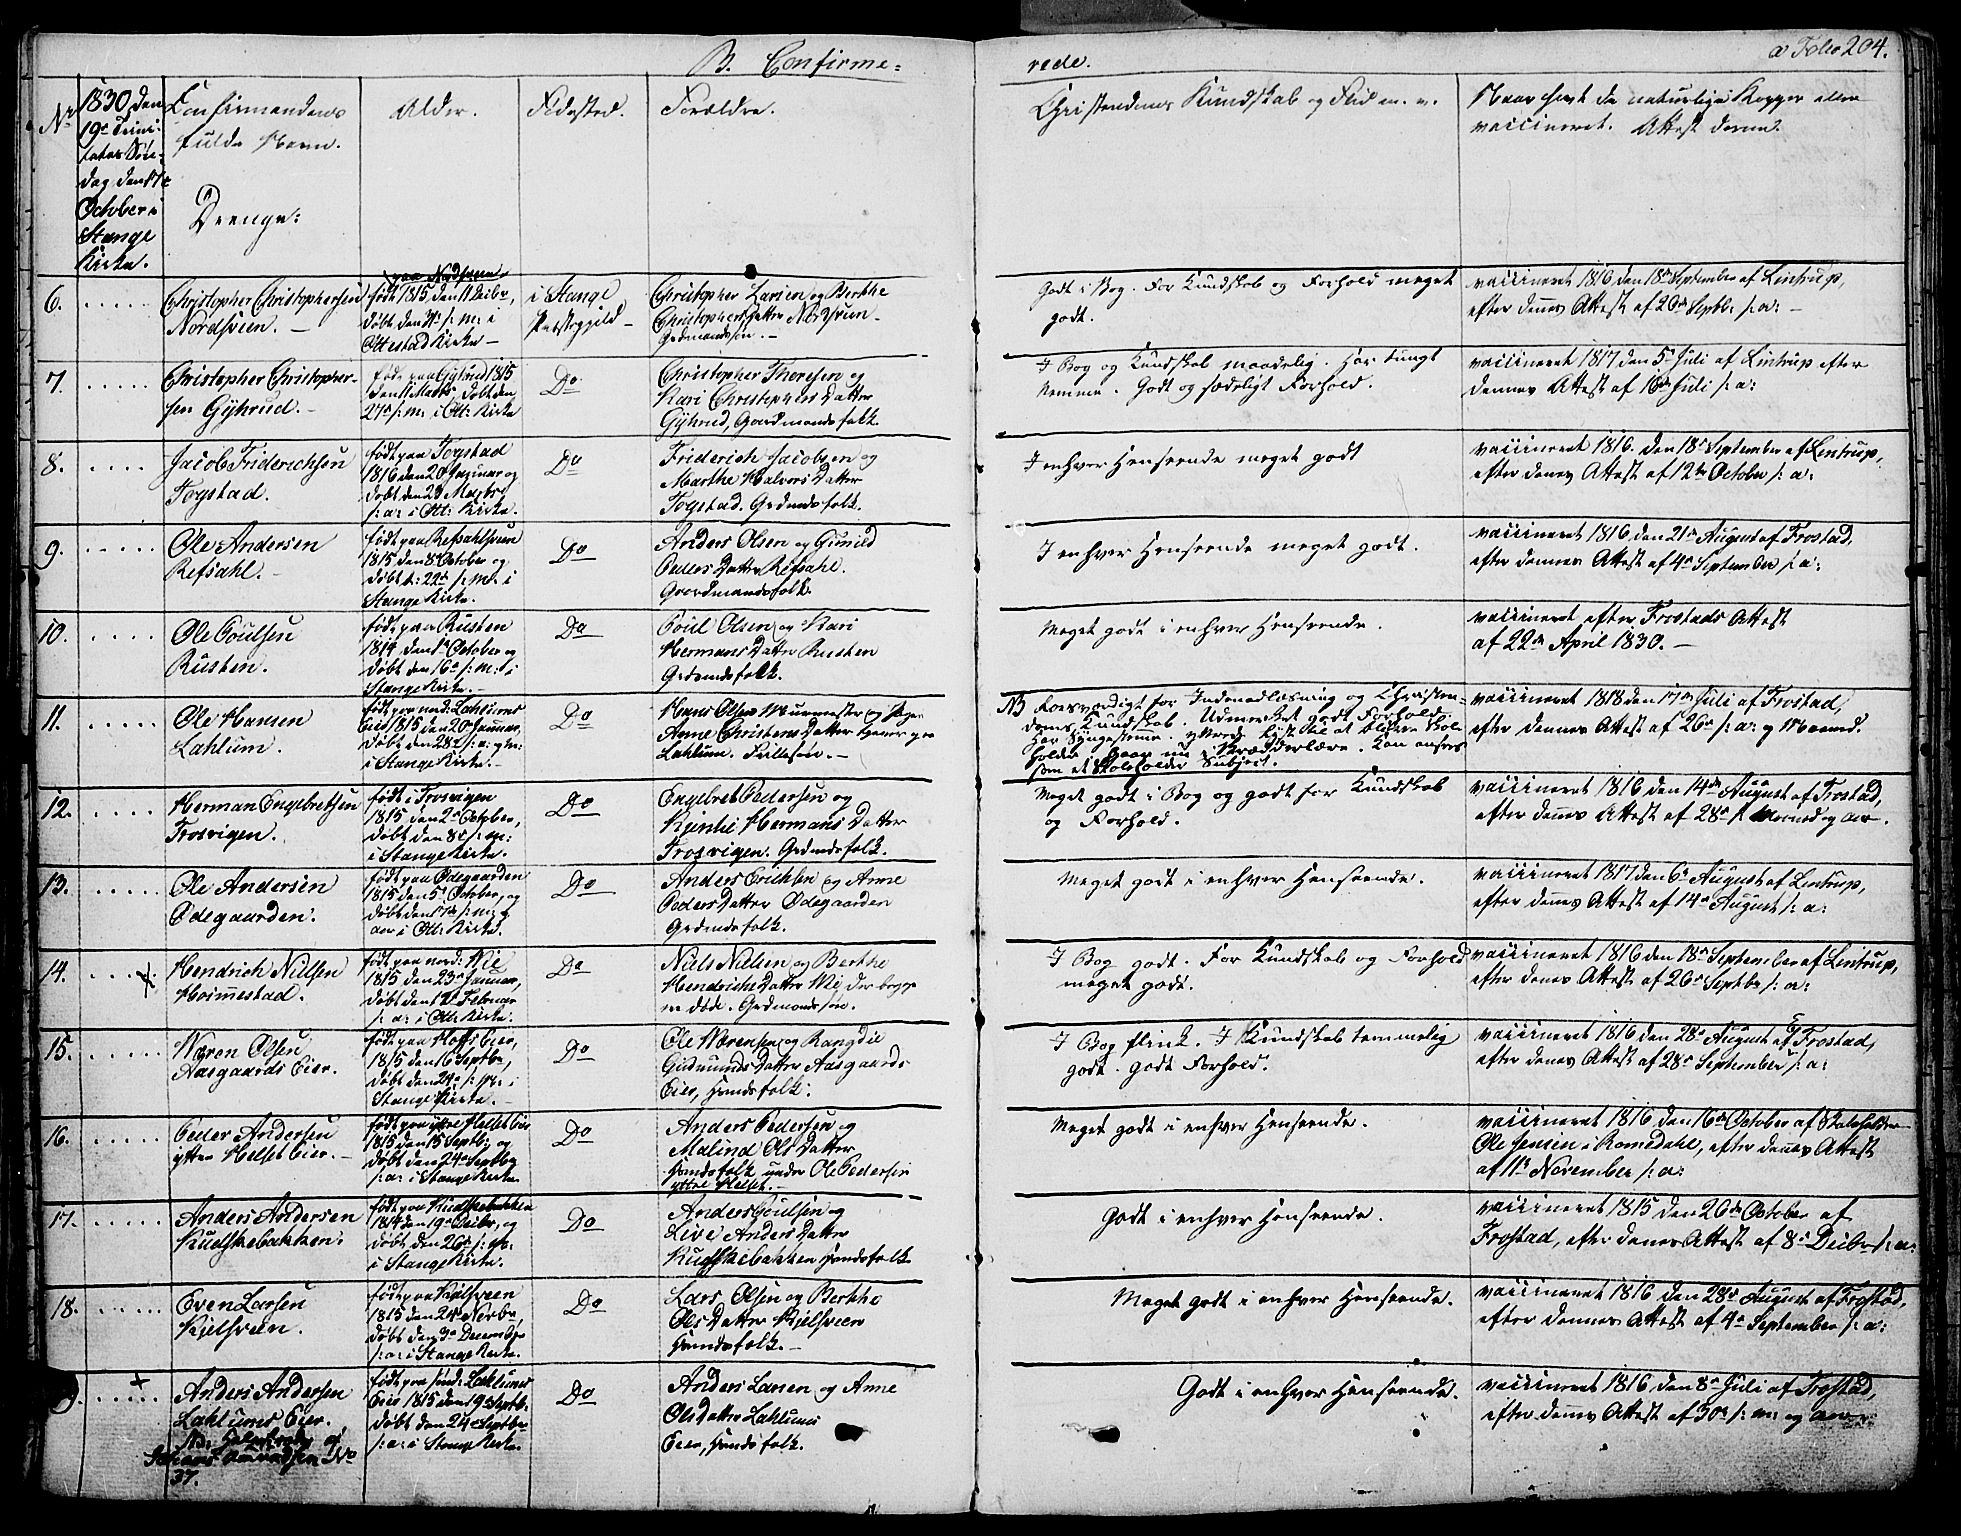 B. Confirme=
rede.
a Folio 204.
No
1830 den
19de Trini-
tatis Søn-
dag den 17de
October i
Stange
Kirke.
Confirmandens
fulde Navn.
Drenge:
Alder.
Fødested.
Forældre.
Christendoms Kundskab og Flid m. v.
Naar havt de naturlige Kopper eller
vaccineret. Attest derom.
6.
Christopher Christophersen
Nordsveen.
paa Nordsveen
født 1815 den 11 Decbr,
døbt den 31 s: M: i
Ottestad Kirke
i Stange
Præstegjeld
Christopher Larsen og Berthe
ChristophersDatter Nordsveen
Godt i Bog. For Kundskab og Forhold meget
godt.
vaccineret 1816 den 18de September af Lintrup,
efter dennes Attest af 26de Septbr s: a:
7.
Christopher Christopher-
sen Gyhrud.
født paa Gyhrud 1815
den 11 Marts, døbt den
27de s: m: i Ott: Kirke
Do
Christopher Thoresen og
Kari ChristophersDatter
Gyhrud, Gaardmandsfolk.
I Bog og Kundskab maadelig. Har tungt
Nemme. Godt og sædeligt Forhold.
vaccineret 1817 den 5 Juli af Lintrup efter
dennes Attest af 16de Juli s: a:
8.
Jacob Friderichsen
Togstad.
født paa Togstad
1816 den 20 Januar og
døbt den 23 Marts
s: a: i Ott: Kirke.
Do
Friderich Jacobsen og
Marthe HalvorsDatter
Togstad. Grdmdsfolk.
I enhver Henseende meget godt
vaccineret 1816. den 18de September af Lintrup,
efter dennes Attest af 12te October s: a:
9.
Ole Andersen
Refsahl.
født paa Refsahlsveen
1815 den 8de October og
døbt d: 22de s: M: i
Stange Kirke.
Do
Anders Olsen og Gunild
PedersDatter Refsahl.
Gaardmandsfolk.
I enhver Henseende meget godt.
vaccineret 1816 den 21de August af Frostad,
efter dennes Attest af 4de September s: a:
10.
Ole Poulsen
Rusten.
født paa Rusten
1814 den 1de October og
døbt den 16de s: m: i
Stange Kirke.
Do
Poul Olsen og Kari
HermansDatter Rusten
Grdmdsfolk.
Meget godt i enhver Henseende.
vaccineret efter Frostads Attest
af 22de April 1830.
11.
Ole Hansen
Lahlum.
født paa nord: Lahlums
Eie 1815 den 20de Januar,
døbt den 28de s: a: og m:
i Stange Kirke.
Do
Hans Olsen Murmester og Pige
Anne ChristensDatter tjener paa
Lahlum.
NB Roesværdigt for Indenadlæsning og Christen-
doms Kundskab. Udmærket godt Forhold.
Har Syngestemme. Lyst til at blive Skol-
holder. Gaar nu i Skrædderlære. Kan ansees
som et Skoleholder Subject.
vaccineret 1818 den 17de Juli af Frostad,
efter dennes Attest af 26de s: a: og Maaned.
12.
Herman Engebretsen
Frosvigen.
født i Frosvigen
1815 den 2de October,
døbt den 8de s: m:
i Stange Kirke.
Do
Engebret Pedersen og
Kjersti HermansDatter
Frosvigen. Grdmdsfolk.
Meget godt i Bog og godt for Kundskab
og Forhold.
vaccineret 1816 den 14de August af Frostad,
efter dennes Attest af 28de s: Maaned og Aar.
13.
Ole Andersen
Ødegaarden.
født paa Ødegaarden
1815 den 5te October, og
døbt den 17de s: m: og
aar i Ott: Kirke.
Do
Anders Erichsen og Anne
PedersDatter Ødegaarden
Grdmdsfolk.
Meget godt i enhver Henseende.
vaccineret 1817 den 6de August af Lintrup,
efter dennes Attest af 14de August s: a:
14.
Hendrich Nilsen
Hormestad.
født paa nord: Wie
1815 den 23de Januar,
døbt den 12 Februar
s: a: i Ott: Kirke.
Do
Niels Nilsen og Berthe
HendrichsDatter Wie, der begge
ere døde.
I Bog godt. For Kundskab og Forhold
meget godt.
vaccineret 1816 den 18de September af Lintrup,
efter dennes Attest af 26de Septbr s: a:
15.
Næron Olsen
Aasgaards Eier.
født paa Hoffs Eier,
1815 den 16 Septbr,
døbt den 24de s: M: i
Stange Kirke.
Do
Ole Nærensen og Rangdie
GudmundsDatter Aasgaards
Eier, Huusfolk.
I Bog flink. I Kundskab temmelig
godt. godt Forhold.
vaccineret 1816 den 28de August af Frostad,
efter dennes Attest af 28de September s: a:
16.
Peder Andersen
ytter Helset Eier.
født paa ytre Helset Eie
1815 den 15 Septbr og
døbt den 24de Septbr
s: a: i Stange Kirke
Do
Anders Pedersen og
Malind OlsDatter
Huusfolk under Ole Pedersen
yttre Helset.
Meget godt i enhver Henseende.
vaccineret 1816 den 16de October af Skoleholder
Ole Jensen i Romedahl, efter dennes Attest
af 11te November s: a:
17.
Anders Andersen
Kudskebakken.
født paa Kudskebakken
1814 den 19de Decbr, og
døbt den 26de s: m:
i Stange Kirke.
Do
Anders Poulsen og
Live AndersDatter
Kudskebakken Huusfolk
Godt i enhver Henseende.
vaccineret 1815 den 26de October af
Frostad, efter dennes Attest af 8de Decbr s: a:
18.
Even Larsen
Kjelsveen.
født paa Kjelsveen
1815 den 24de Novbr,
døbt den 3de December
s: a: i Stange Kirke.
Do
Lars Olsen og Berthe
OlsDatter Kjelsveen
Huusfolk.
Meget godt i enhver Henseende.
vaccineret 1816 den 28de August af Frostad,
efter dennes Attest af 4de September s: a:
Anders Andersen
Lahlums Eier.
37.
født paa sønd: Lahlums
Eie 1815 den 19de Septb.
døbt den 24de Septbr
s: a: i Stange Kirke
Do
Anders Larsen og Anne
OlsDatter Lahlums
Eier, Huusfolk.
Godt i enhver Henseende.
vaccineret 1816, den 8de Juli af Frostad,
efter dennes Attest af 30de s: m: og aar